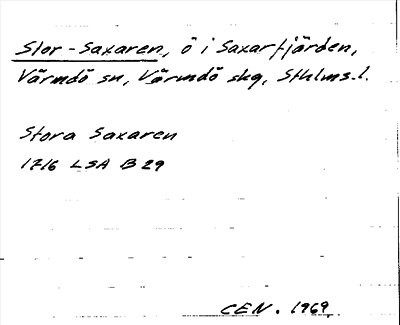 Stor-Saxaren, ö i Saxarfjärden,
Värmdö sn, Värmdö skg, Sthlms l.
Stora Saxaren
1716 LSA B 29
CEN. 1969